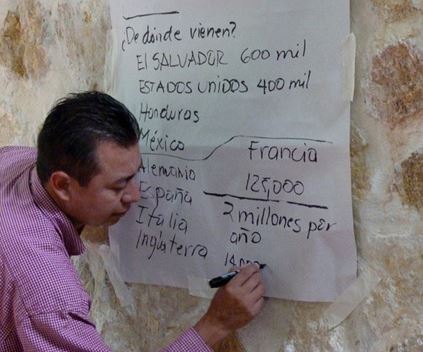 ¿De dónde vienen?
El SALVADOR 600 mil
ESTADOS UNIDOS 400 mil
Honduras
México
Alemania
España
Italia
Inglaterra
Francia
125,000
2 millones por
año